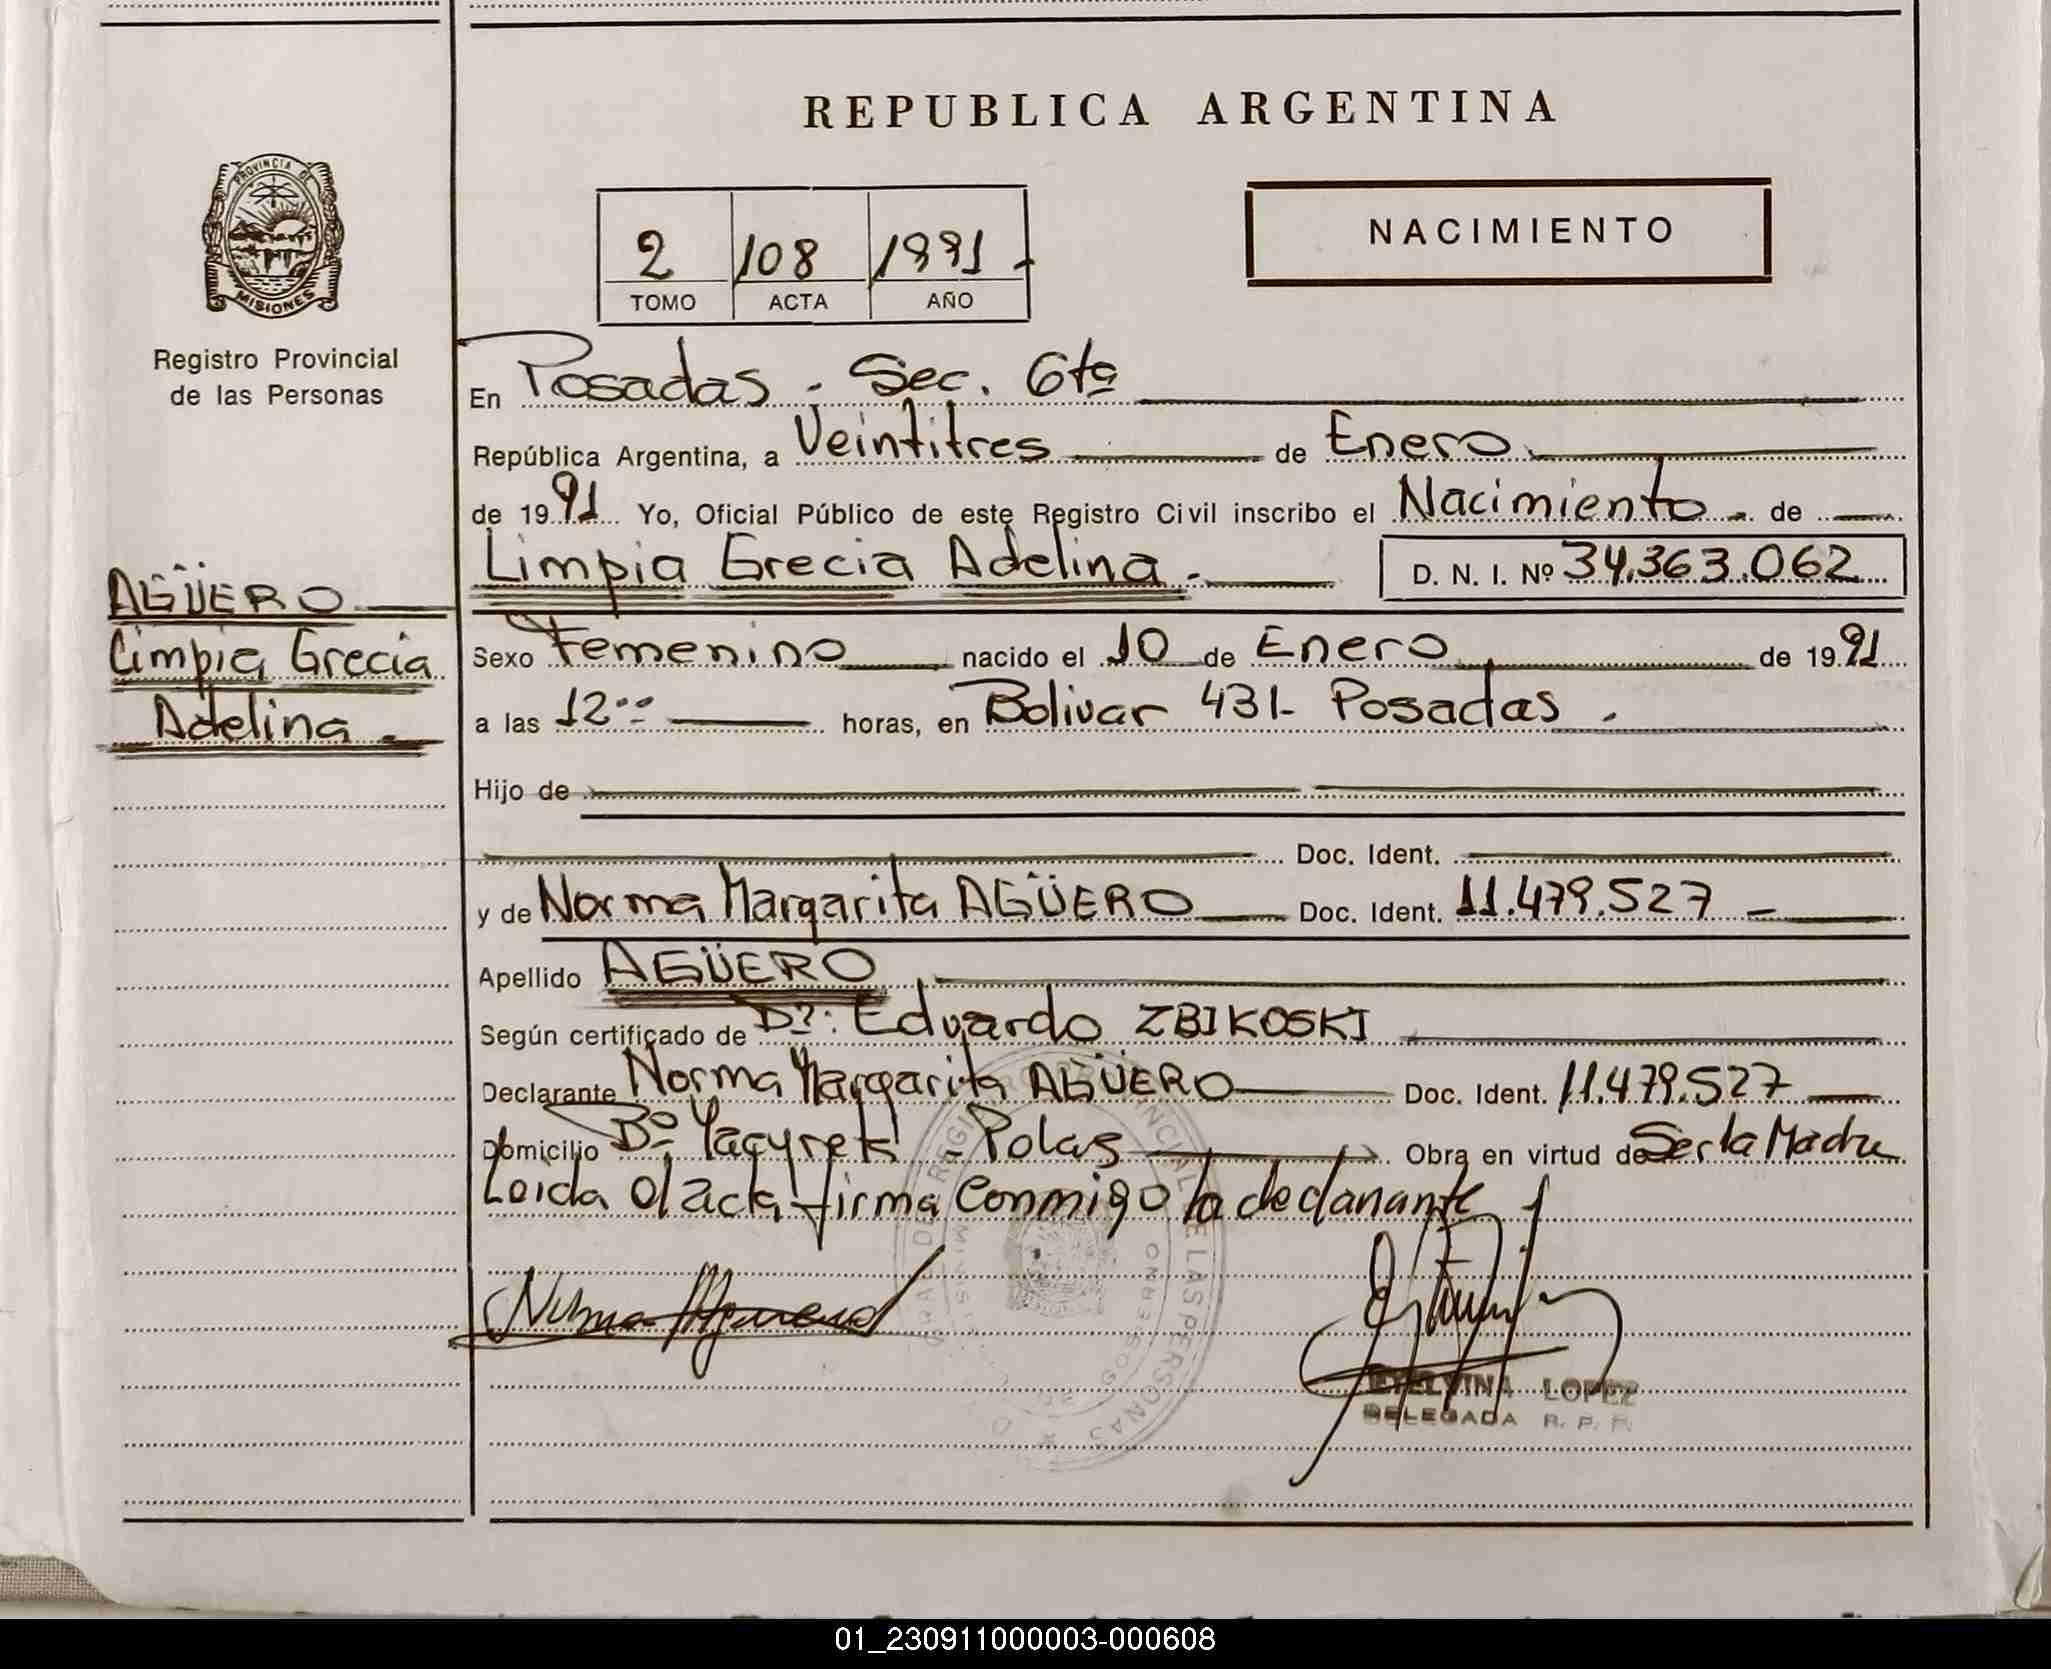 REPUBLICA ARGENTINA
PROVINCIA DE
MISIONES
Registro Provincial
de las Personas
NACIMIENTO
2 108 1991
TOMO ACTA AÑO
En Posadas - Sec. 6ta
República Argentina, a Veintitres de Enero
de 1991 Yo, Oficial Público de este Registro Civil inscribo el Nacimiento de
Limpia Grecia Adelina. D. N. I. Nº 34.363.062
AGÜERO
Limpia Grecia
Adelina
Sexo Femenino nacido el 10 de Enero de 1991
a las 12 horas, en Bolivar 431 - Posadas.
Hijo de
Doc. Ident.
y de Norma Margarita AGÜERO Doc. Ident. 11.479.527
Apellido AGÜERO
Según certificado de Dº: Eduardo ZBIKOSKI
Declarante Norma Margarita AGÜERO Doc. Ident. 11.479.527
Domicilio Bº Yacyretá - Polas Obra en virtud de Ser la Madre
Leida el acta firma conmigo la declarante
ETELVINA LOPEZ
DELEGADA R. P. P.
01_230911000003-000608